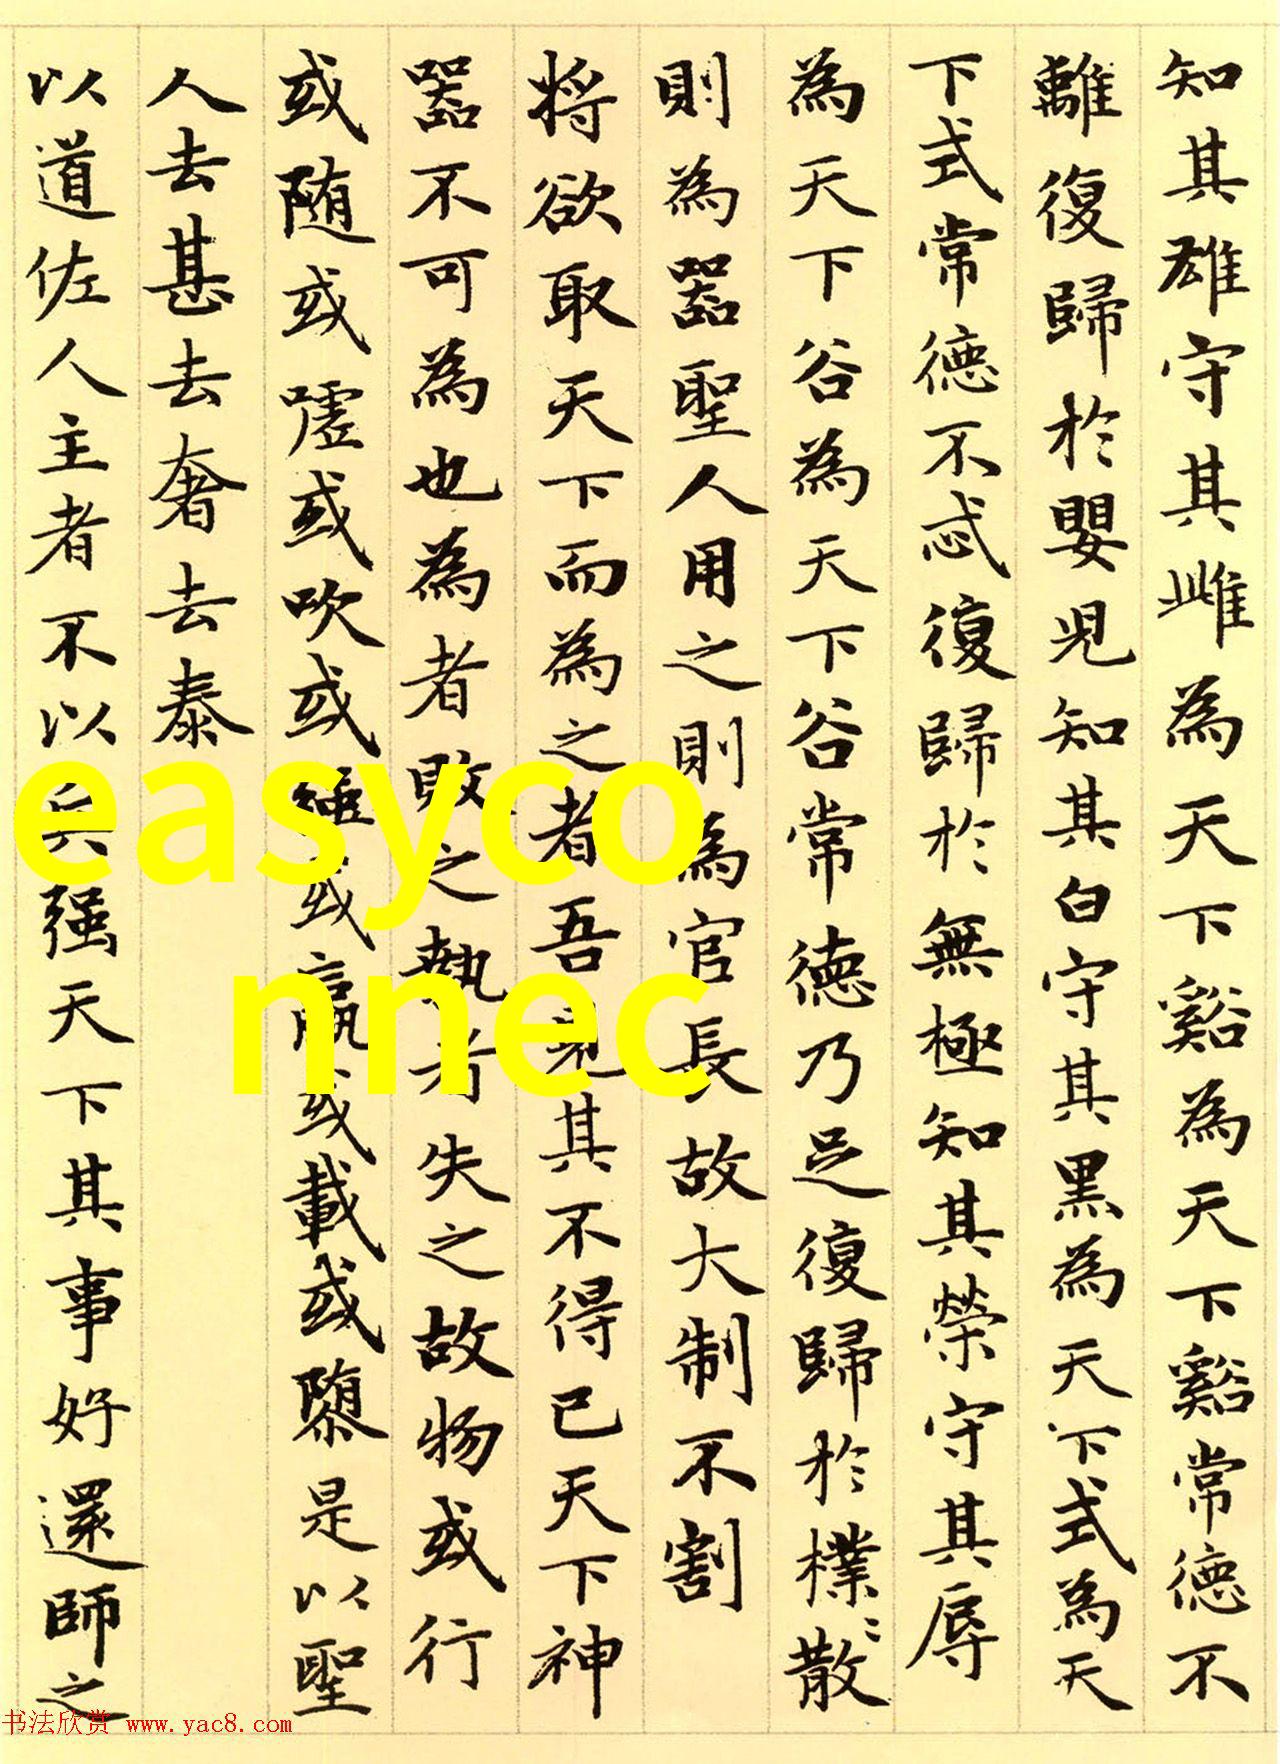 知其雄守其雌為天下谿為天下谿常德不
離復歸於嬰兒知其白守其黑為天下式為天
下式常德不忒復歸於無極知其榮守其辱
為天下谷為天下谷常德乃足復歸於樸〻散
則為器聖人用之則為官長故大制不割
將欲取天下而為之者吾見其不得已天下神
器不可為也為者敗之執者失之故物或行
或随或噓或吹或強或羸或載或隳是以聖
人去甚去奢去泰
以道佐人主者不以兵强天下其事好還師之
easyco
nnec
书法欣赏 www.yac8.com